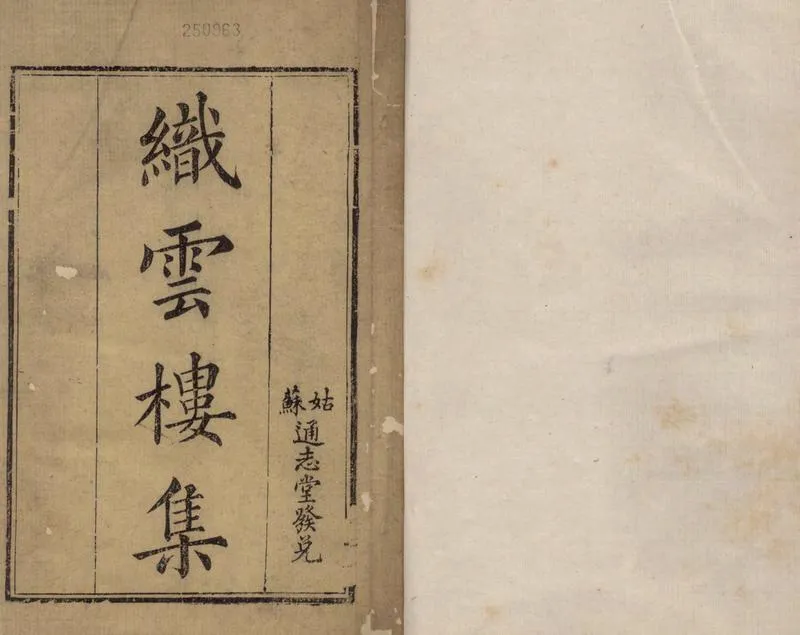 250963
織雲樓集
姑蘇
通志堂發兌